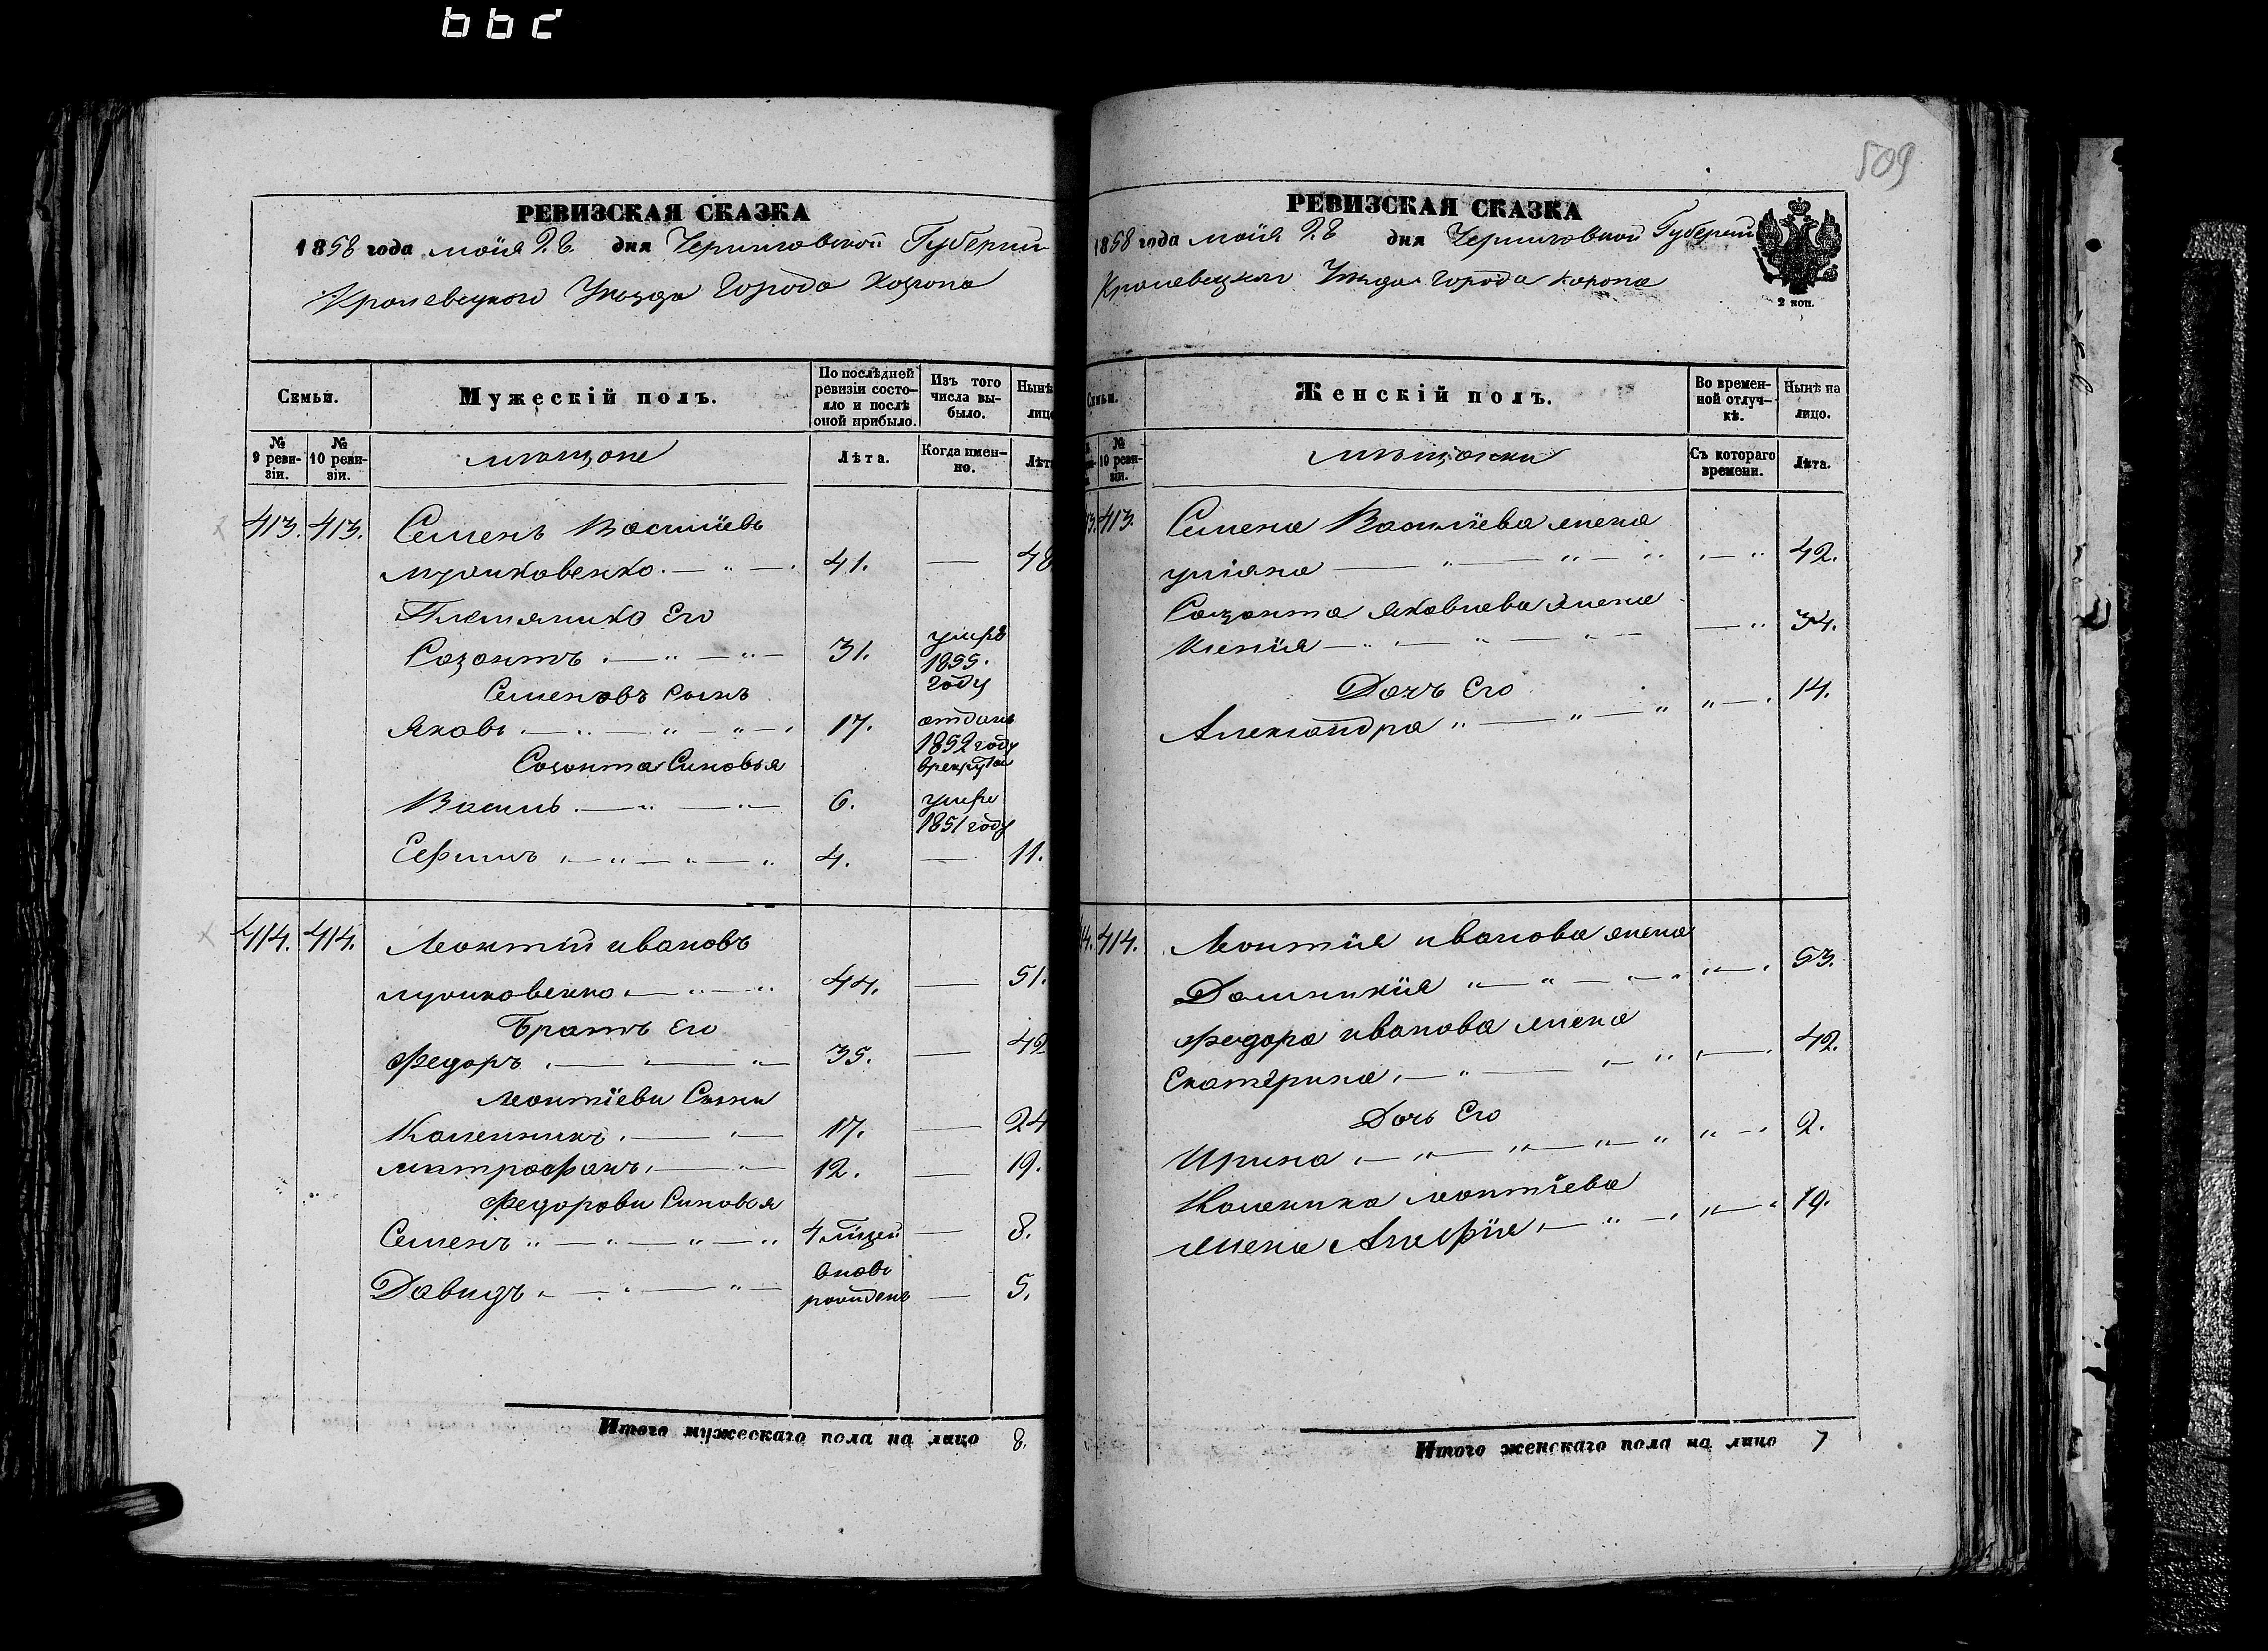 509
РЕВИЗСКАЯ СКАЗКА
1858 года мая 28 дня Черниговской Губернии
Кролевецкого Уезда Города Коропа
Семьи.
Мужескій полъ.
По послѣдней ревизіи состояло и послѣ оной прибыло.
Изъ того числа выбыло.
Нынѣ
лицо
№ 9 ревизіи.
№ 10 ревизіи.
мещане
Лѣта.
Когда именно.
Лѣт
413. 413. Семенъ Василіевъ
41. — 48
Племянико Его
Созонтъ 31. умре 1855. году
Семеновъ Сынъ
Яковъ 17. отданъ 1852 году врекруты
Созонта Синовья
Василь 6. умре 1851 году
Єфимъ 4. — 11.
414. 414. Монтій ивановъ
44. — 51.
Братъ Его
Федоръ 35. — 42
Монтіеви Сыни
Каленикъ 17. — 24
митрофанъ 12. — 19.
Федорови Синовья
Семенъ — 8.
Давидъ вновь рожденъ — 5.
Итого мужескаго пола на лицо 8.
РЕВИЗСКАЯ СКАЗКА
1858 года мая 28 дня Черниговской Губернии
Кролевецкого Уезда города Коропа
2 коп.
Семьи.
Женскій полъ.
Во временной отлучкѣ.
Нынѣ на лицо.
№ 10 ревизіи.
мещанки
Съ котораго времени.
Лѣта.
3. 413. Семена Василіева жена
уліяна 42.
Созонта Яковлева жена
34.
Дочъ Его
Александра 14.
14. 414. Монтія иванова жена
Домникія 53.
Федора иванова жена
Екатерина 42.
Дочь Его
Ирина 2.
Каленика монтіева
жена Агафія 19.
Итого женскаго пола на лицо 7